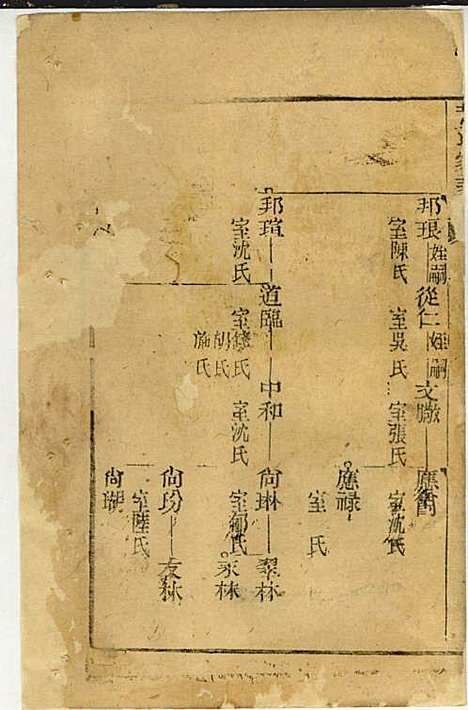 邦琅 姪嗣 從仁 姪嗣 文 應
室陳氏 室吳氏 室張氏 室沈氏
應祿
室 氏
邦瑄 道臨 中和 尚琳 翠林
室沈氏 室錢氏 室沈氏 室郁氏 永林
胡氏
施氏
尚玢 友林
室陸氏
尚瑚